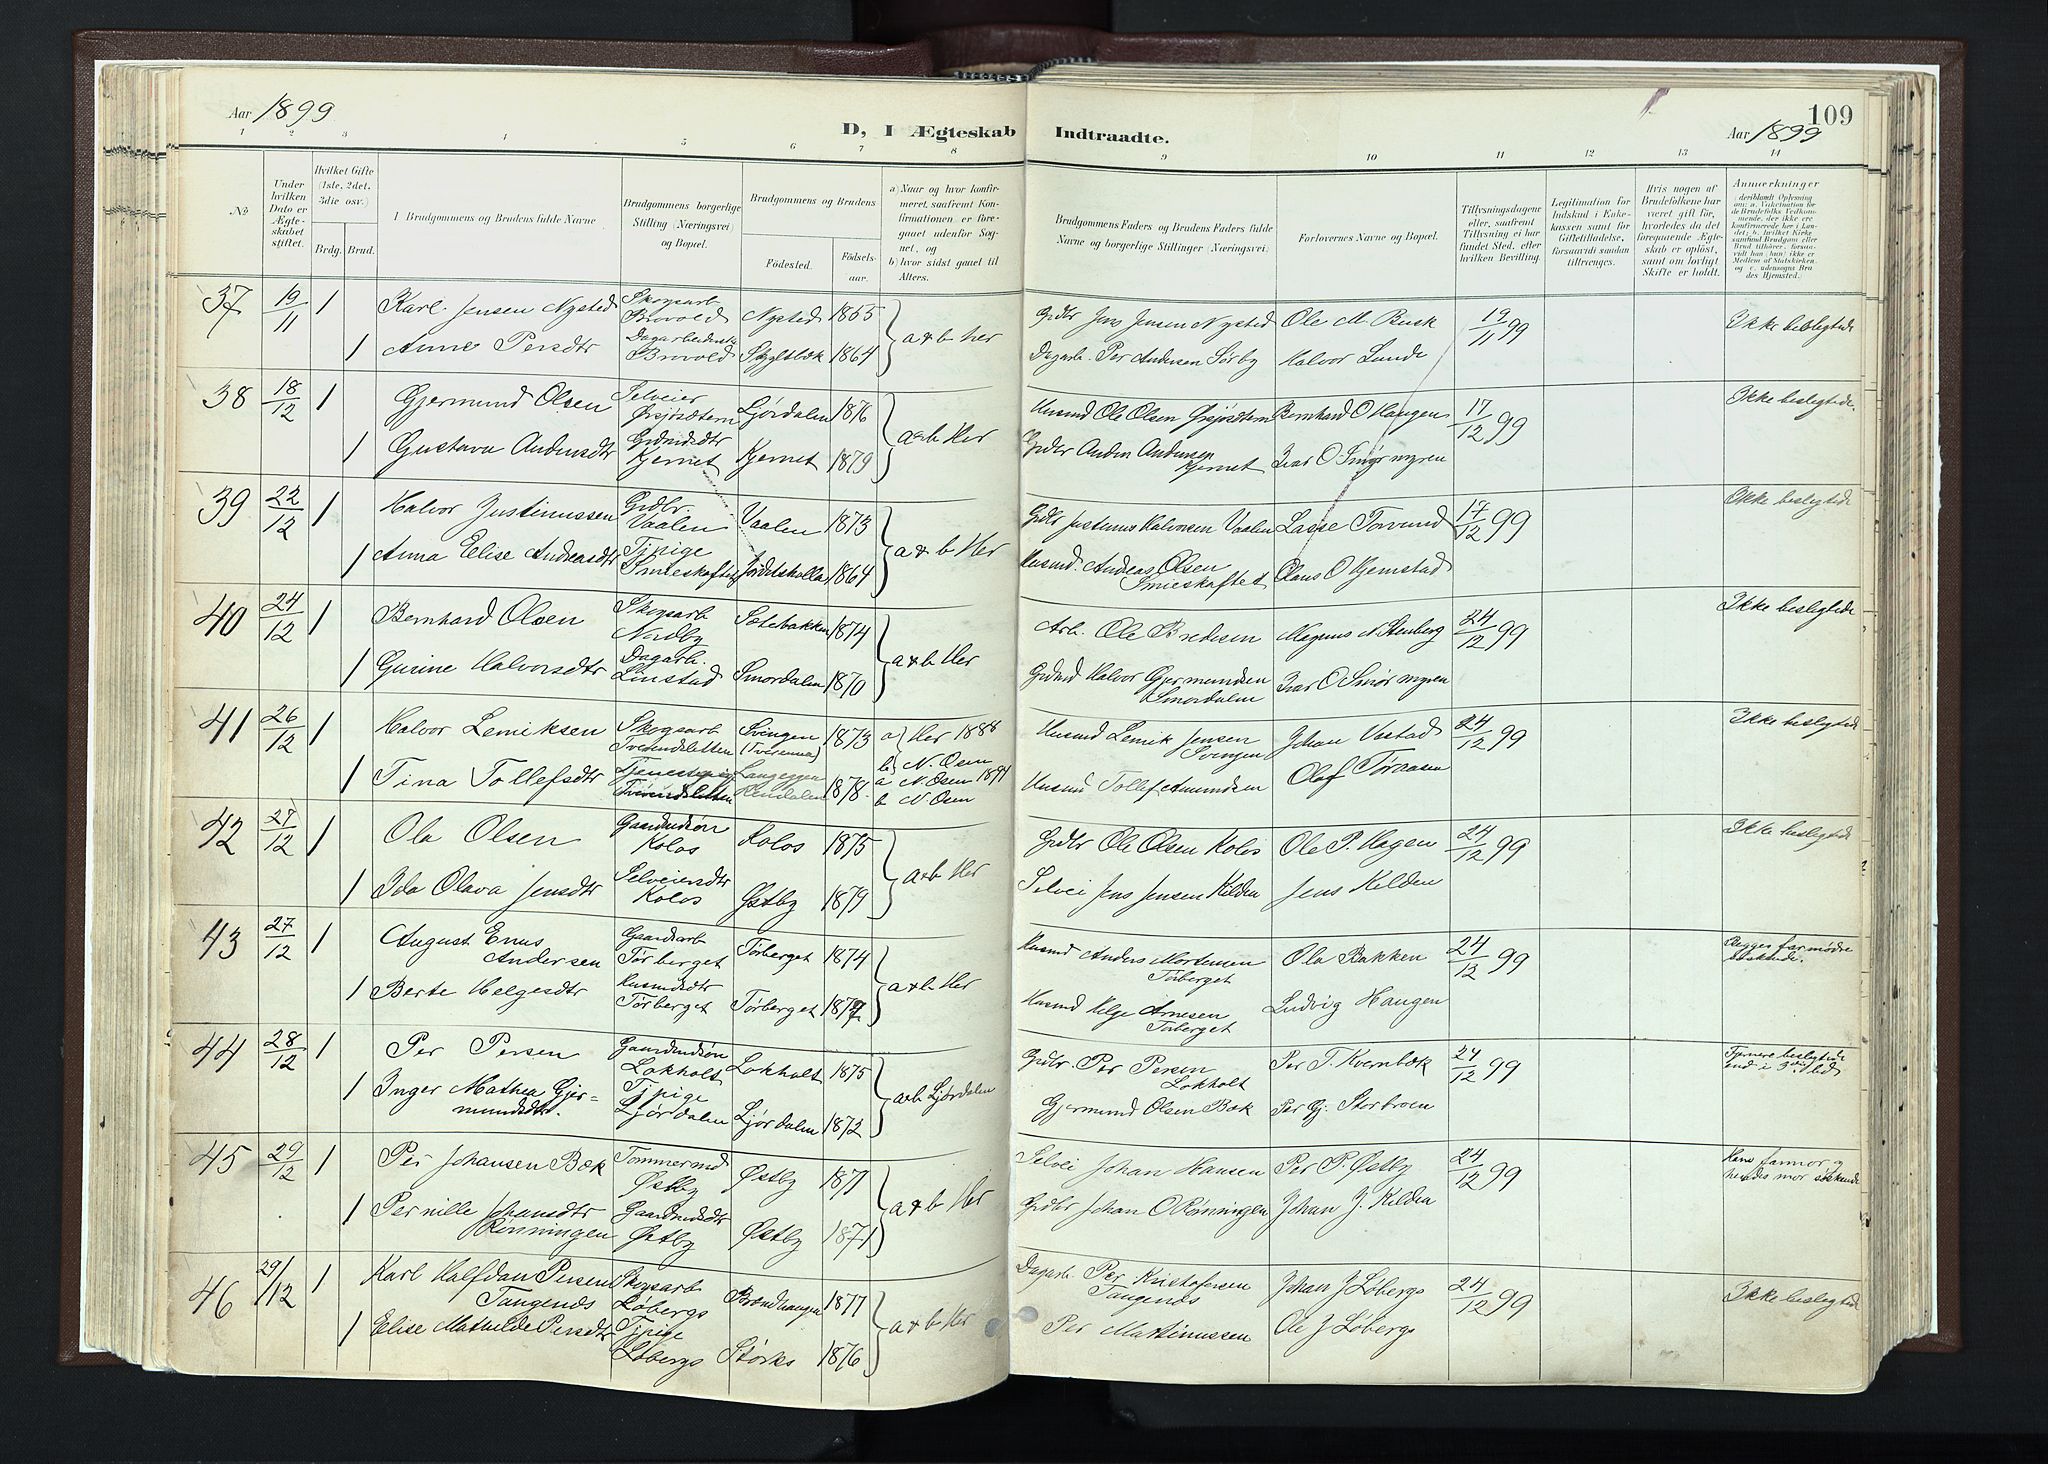 Aar 1899
D, I Ægteskab Indtraadte.
109
Aar 1899
1 2 3 4 5 6 7 8 9 10 11 12 13 14
№
Under hvilken Dato er Ægteskabet stiftet.
Hvilket Gifte (1ste, 2det, 3die osv.)
Brdg. Brud.
I Brudgommens og Brudens fulde Navne
Brudgommens borgerlige Stilling (Næringsvei) og Bopæl.
Brudgommens og Brudens
Fødested. Fødselsaar.
a) Naar og hvor konfirmeret, saafremt Konfirmationen er foregaaet udenfor Sognet, og
b) hvor sidst gaaet til Alters.
Brudgommens Faders og Brudens Faders fulde Navne og borgerlige Stillinger (Næringsvei)
Forlovernes Navne og Bopæl.
Tillysningsdagene eller, saafremt Tillysning ei har fundet Sted, efter hvilken Bevilling.
Legitimation for Indskud i Enkekassen samt for Giftetilladelse, forsaavidt saadan tiltrænges.
Hvis nogen af Brudefolkene har været gift før, hvorledes da det foregaaende Ægteskab er opløst, samt om lovligt Skifte er holdt.
Anmærkninger
37 19/11 1 Karl Jensen Nysted Skogsarb Brovold Nysted 1865 a & b her Grdbr Jens Jensen Nysted Ole M. Busk 19/11 99 Ikke beslegtede
1 Anne Persdtr Brovold 1864 Dagarb. Per Andersen Sørby Halvor Lunde
38 18/12 1 Gjermund Olsen Selveier Ørsjøsætern Ljørdalen 1876 a & b Her Husmd Ole Olsen Ørsjøsætern Bernhard O Haugen 17/12 99 Ikke beslegtede.
1 Gustava Andersdtr Kjernet Kjernet 1879 Grdbr Anders Andersen Kjernet Ivar O Smørmyren
39 22/12 1 Halvor Justinussen Grdbr. Vaalen Vaalen 1873 a & b Her Grdbr Justinus Halvorsen Vaalen Lasse Torvund 17/12 99 Ikke beslegtede
1 Anna Elise Andreasdtr Tjpige Smieskaftet 1864 Husmd. Andreas Olsen Smieskaftet Claus O Kjemstad
40 24/12 1 Bernhard Olsen Skogsarb Nordby Sætebakken 1874 a & b Her Arb. Ole Bredesen Magnus N Stenberg 24/12 99 Ikke beslegtede
1 Gurine Halvorsdtr Dagarb. Linstad Smordalen 1870 Halvor Gjermundsen Smordalen Ivar O Smørmyren
41 26/12 1 Halvor Lemiksen Skogsarb Svingen 1873 a) Her 1888 Husmd Lemik Jensen Svingen Johan Vestad 24/12 99 Ikke beslegtede
b) N. Osen
1 Tina Tollefsdtr Langeggen 1878. a N. Osen 1894 Husmd Tollef Amundsen Olaf
b N. Osen
42 27/12 1 Ola Olsen Gaardmdsøn Kolos Kolos 1875 a & b Her Grdbr Ole Olsen Kolos Ole P. Hagen 24/12 99 Ikke beslegtede
1 Ida Olava Jensdtr Selveiersdtr Kolos Østby 1879 Selvei Jens Jensen Kilden Jens Kilden
43 27/12 1 August Enus Andersen Gaardsarb Tørberget Tørberget 1874 a & b Her Husmd Anders Mortensen Tørberget Ola Bakken 24/12 99 Begges farmødre søskende.
1 Berte Helgesdtr Husmdsdtr Tørberget Tørberget Husmd Helge Arnesen Tørberget Ludvig Haugen
44 28/12 1 Per Persen Gaardmdsøn Lokholt Lokholt 1875 a & b Ljørdalen Grdbr. Per Persen Lokholt Per T. Kvernbæk 24/12 99 Fjernere beslegtede end i 3die led
1 Inger Mathea Gjermundsdtr. Tjpige Ljørdalen Ljørdalen 1872 Gjermund Olsen Bæk Per Gj. Storbroen
45 29/12 1 Per Johansen Bæk Tømmermd Østby Østby 1871 a & b Her Selvei Johan Hansen Per P. Østby 24/12 99 Hans farmor og hendes mor søskende
1 Pernille Johansdtr Rønningen Gaardmdsdtr Østby Østby 1871 Grdbr Johan O Rønningen Johan J. Kilden
46 29/12 1 Karl Halfdan Persen Tangends Skogsarb Løbergs Brændhaugen 1877 a & b Her Dagarb. Per Kristofersen Tangends Johan J Løbergs 24/12 99 Ikke beslegtede
1 Elise Mathilde Persdtr Tjpige Løbergs Størks 1876 Per Martinussen Ole J Løbergs